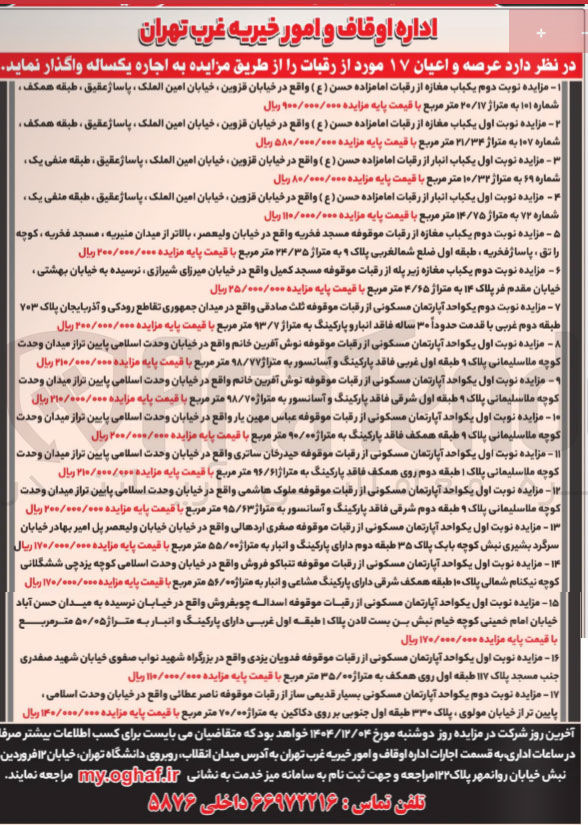 اداره اوقاف و امور خیریه غرب تهران
در نظر دارد عرصه و اعیان ۱۷ مورد از رقبات را از طریق مزایده به اجاره یکساله واگذار نماید.
۱- مزایده نوبت دوم یکباب مغازه از رقبات امامزاده حسن ( ع ) واقع در خیابان قزوین ، خیابان امین الملک ، پاساژ عقیق ، طبقه همکف ،
شماره ۱۰۱ به متراژ ۲۰/۱۷ متر مربع با قیمت پایه مزایده ۹۰۰/۰۰۰/۰۰۰ ریال
۲- مزایده نوبت اول یکباب مغازه از رقبات امامزاده حسن ( ع ) واقع در خیابان قزوین ، خیابان امین الملک ، پاساژ عقیق ، طبقه همکف ،
شماره ۱۰۷ به متراژ ۲۱/۳۴ متر مربع با قیمت پایه مزایده ۵۸۰/۰۰۰/۰۰۰ ریال
۳- مزایده نوبت اول یکباب انبار از رقبات امامزاده حسن ( ع ) واقع در خیابان قزوین ، خیابان امین الملک ، پاساژ عقیق ، طبقه منفی یک ،
شماره ۶۹ به متراژ ۱۰/۳۲ متر مربع با قیمت پایه مزایده ۸۰/۰۰۰/۰۰۰ ریال
۴- مزایده نوبت اول یکباب انبار از رقبات امامزاده حسن ( ع ) واقع در خیابان قزوین ، خیابان امین الملک ، پاساژ عقیق ، طبقه منفی یک ،
شماره ۷۲ به متراژ ۱۴/۷۵ متر مربع با قیمت پایه مزایده ۱۱۰/۰۰۰/۰۰۰ ریال
۵- مزایده نوبت دوم یکباب مغازه از رقبات موقوفه مسجد فخریه واقع در خیابان ولیعصر ، بالاتر از میدان منیریه ، مسجد فخریه ، کوچه
را تق ، پاساژ فخریه ، طبقه اول ضلع شمالغربی پلاک ۹ به متراژ ۲۴/۳۵ متر مربع با قیمت پایه مزایده ۲۰۰/۰۰۰/۰۰۰ ریال
۶- مزایده نوبت دوم یکباب مغازه زیر پله از رقبات موقوفه مسجد کمیل واقع در خیابان میرزای شیرازی ، نرسیده به خیابان بهشتی ،
خیابان مقدم فر پلاک ۱۴ به متراژ ۴/۶۵ متر مربع با قیمت پایه مزایده ۲۵/۰۰۰/۰۰۰ ریال
۷- مزایده نوبت دوم یکواحد آپارتمان مسکونی از رقبات موقوفه ثلث صادقی واقع در میدان جمهوری تقاطع رودکی و آذربایجان پلاک ۷۰۳
طبقه دوم غربی با قدمت حدوداً ۳۰ ساله فاقد انبار و پارکینگ به متراژ ۹۳/۷ متر مربع با قیمت پایه مزایده ۲۰۰/۰۰۰/۰۰۰ ریال
۸- مزایده نوبت اول یکواحد آپارتمان مسکونی از رقبات موقوفه نوش آفرین خانم واقع در خیابان وحدت اسلامی پایین تراز میدان وحدت
کوچه ملاسلیمانی پلاک ۹ طبقه اول غربی فاقد پارکینگ و آسانسور به متراژ ۹۸/۷۷ متر مربع با قیمت پایه مزایده ۲۱۰/۰۰۰/۰۰۰ ریال
۹- مزایده نوبت اول یکواحد آپارتمان مسکونی از رقبات موقوفه نوش آفرین خانم واقع در خیابان وحدت اسلامی پایین تراز میدان وحدت
کوچه ملاسلیمانی پلاک ۹ طبقه اول شرقی فاقد پارکینگ و آسانسور به متراژ ۹۸/۷۰ متر مربع با قیمت پایه مزایده ۲۱۰/۰۰۰/۰۰۰ ریال
۱۰- مزایده نوبت اول یکواحد آپارتمان مسکونی از رقبات موقوفه عباس مهین یار واقع در خیابان وحدت اسلامی پایین تراز میدان وحدت
کوچه ملاسلیمانی پلاک ۹ طبقه همکف فاقد پارکینگ به متراژ ۹۰/۰۰ متر مربع با قیمت پایه مزایده ۲۰۰/۰۰۰/۰۰۰ ریال
۱۱- مزایده نوبت اول یکواحد آپارتمان مسکونی از رقبات موقوفه حیدرخان ساتری واقع در خیابان وحدت اسلامی پایین تراز میدان وحدت
کوچه ملاسلیمانی پلاک ۱ طبقه دوم روی همکف فاقد پارکینگ به متراژ ۹۶/۶۱ متر مربع با قیمت پایه مزایده ۲۱۰/۰۰۰/۰۰۰ ریال
۱۲- مزایده نوبت اول یکواحد آپارتمان مسکونی از رقبات موقوفه ملوک هاشمی واقع در خیابان وحدت اسلامی پایین تراز میدان وحدت
کوچه ملاسلیمانی پلاک ۹ طبقه دوم شرقی فاقد پارکینگ و آسانسور به متراژ ۹۵/۶۳ متر مربع با قیمت پایه مزایده ۲۰۰/۰۰۰/۰۰۰ ریال
۱۳- مزایده نوبت اول یکواحد آپارتمان مسکونی از رقبات موقوفه صغری اردهالی واقع در خیابان خیابان ولیعصر پل امیر بهادر خیابان
سرگرد بشیری نبش کوچه بابک پلاک ۳۵ طبقه دوم دارای پارکینگ و انبار به متراژ ۵۵/۰۰ متر مربع با قیمت پایه مزایده ۱۷۰/۰۰۰/۰۰۰ ریال
۱۴- مزایده نوبت اول یکواحد آپارتمان مسکونی از رقبات موقوفه تنباکو فروش واقع در خیابان وحدت اسلامی کوچه یزدچی ششگلانی
کوچه نیکنام شمالی پلاک ۱۰ طبقه همکف شرقی دارای پارکینگ مشاعی و انبار به متراژ ۵۶/۰۰ متر مربع با قیمت پایه مزایده ۱۷۰/۰۰۰/۰۰۰ ریال
۱۵- مزایده نوبت اول یکواحد آپارتمان مسکونی از رقبات موقوفه اسداله چوبفروش واقع در خیابان نرسیده به میدان حسن آباد
خیابان امام خمینی کوچه خیام نبش بن بست لادن پلاک ۱ طبقه اول غربی دارای پارکینگ و انبار به متراژ ۵۰/۰۵ مترمربع
با قیمت پایه مزایده ۱۷۰/۰۰۰/۰۰۰ ریال
۱۶- مزایده نوبت اول یکواحد آپارتمان مسکونی از رقبات موقوفه فدویان یزدی واقع در بزرگراه شهید نواب صفوی خیابان شهید صفدری
جنب مسجد پلاک ۱۱۷ طبقه اول روی همکف به متراژ ۳۵/۰۰ متر مربع با قیمت پایه مزایده ۱۱۰/۰۰۰/۰۰۰ ریال
۱۷- مزایده نوبت دوم یکواحد آپارتمان مسکونی بسیار قدیمی ساز از رقبات موقوفه ناصر عطائی واقع در خیابان وحدت اسلامی ،
پایین تر از خیابان مولوی ، پلاک ۳۳۰ طبقه اول جنوبی بر روی دکاکین به متراژ ۷۰/۰۰ متر مربع با قیمت پایه مزایده ۱۴۰/۰۰۰/۰۰۰ ریال
آخرین روز شرکت در مزایده روز دوشنبه مورخ ۱۴۰۴/۱۲/۰۴ خواهد بود که متقاضیان می بایست برای کسب اطلاعات بیشتر صرفا
در ساعات اداری، به قسمت اجارات اداره اوقاف و امور خیریه غرب تهران به آدرس میدان انقلاب، روبروی دانشگاه تهران، خیابان ۱۲ فروردین
نبش خیابان روانمهر پلاک ۱۲۲ مراجعه و جهت ثبت نام به سامانه میز خدمت به نشانی my.oghaf.ir مراجعه نمایند.
تلفن تماس : ۶۶۹۷۲۲۱۶ داخلی ۵۸۷۶